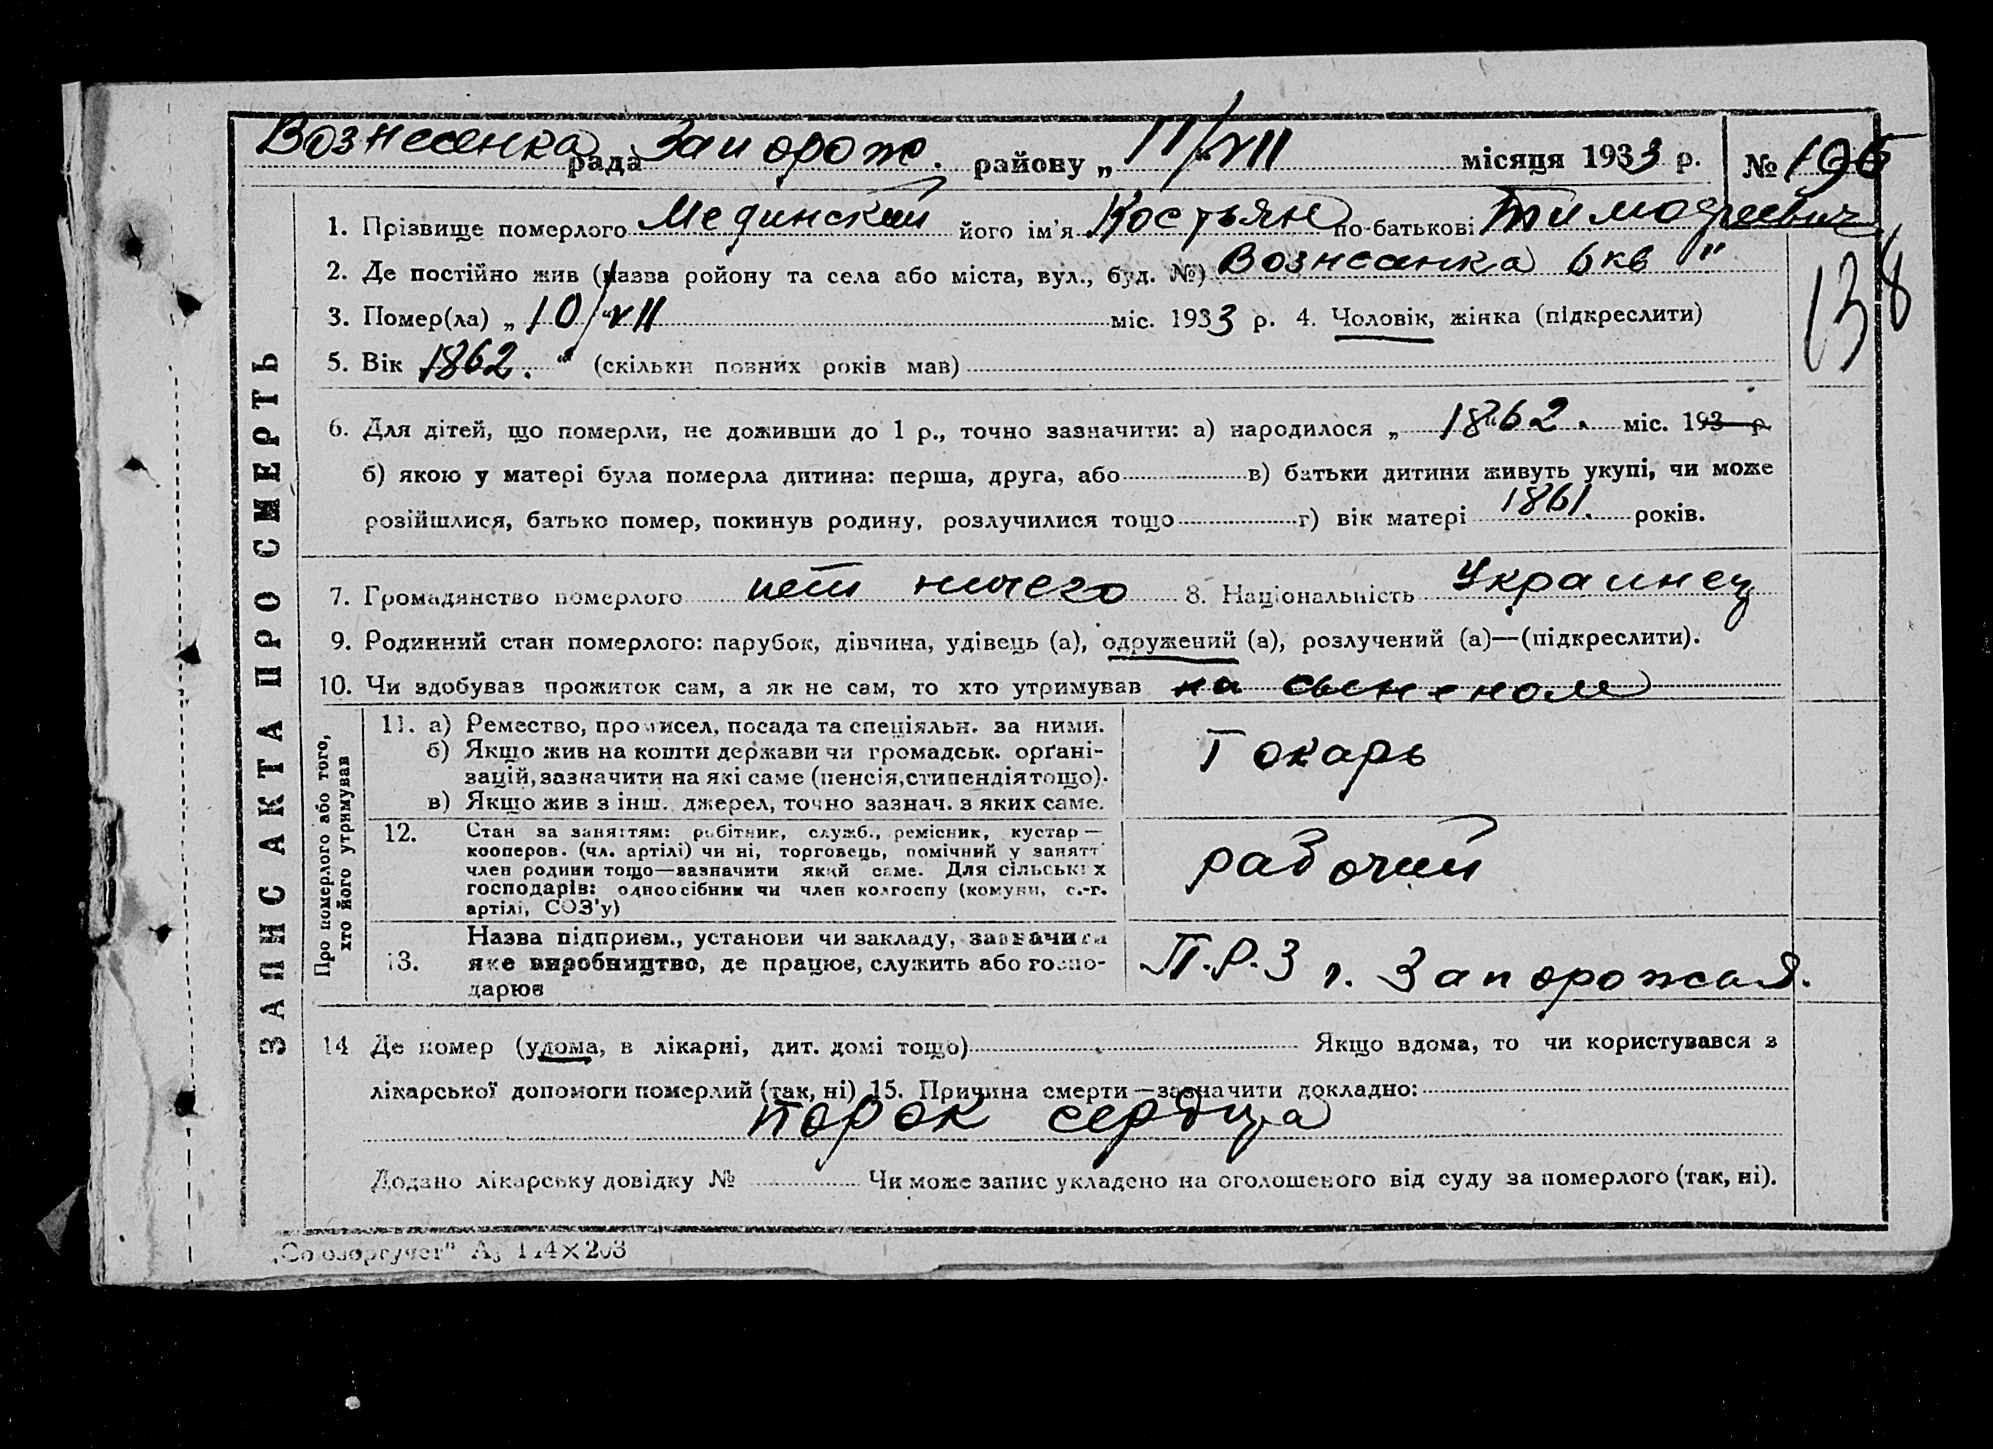 Вознесенка рада Запорож. району „ 11/VII “ місяця 1933 р. № 196
1. Прізвище померлого Мединский його ім’я Костьян по-батькові Тимофеевич
2. Де постійно жив (назва ройону та села або міста, вул., буд. №) Вознесенка 6 кв "
138
3. Помер(ла) „ 10/VII “ міс. 1933 р. 4. Чоловік, жінка (підкреслити)
5. Вік 1862. “ (скільки повних років мав)
6. Для дітей, що померли, не доживши до 1 р., точно зазначити: а) народилося „ 1862. міс. 193 р
б) якою у матері була померла дитина: перша, друга, або в) батьки дитини живуть укупі, чи може
розійшлися, батько помер, покинув родину, розлучилися тощо г) вік матері 1861. років.
7. Громадянство померлого нет ничего 8. Національність Украинец
9. Родинний стан померлого: парубок, дівчина, удівець (а), одружений (а), розлучений (а)—(підкреслити).
10. Чи здобував прожиток сам, а як не сам, то хто утримував на
ЗАПИС АКТА ПРО СМЕРТЬ
Про померлого або того,
хто його утримував
11. а) Ремество, промисел, посада та спеціяльн. за ними.
б) Якщо жив на кошти держави чи громадськ. орґані-
зацій, зазначити на які саме (пенсія, стипендія тощо).
в) Якщо жив з інш. джерел, точно зазнач. з яких саме.
Токарь
12. Стан за заняттям: робітник, служб., ремісник, кустар —
кооперов. (чл. артілі) чи ні, торговець, помічний у занятт
член родини тощо—зазначити який саме. Для сільських
господарів: одноосібник чи член колгоспу (комуни, с.-г.
артілі, СОЗ’у)
рабочий
Назва підприєм., установи чи закладу, зазначити
13. яке виробництво, де працює, служить або госпо-
дарює
П.Р.З г. Запорожья.
14 Де помер (удома, в лікарні, дит. домі тощо) Якщо вдома, то чи користувався з
лікарської допомоги померлий (так, ні) 15. Причина смерти—зазначити докладно:
порок сердца
Додано лікарську довідку № Чи може запис укладено на оголошеного від суду за померлого (так, ні).
„Союзоргучет" А5 114×203